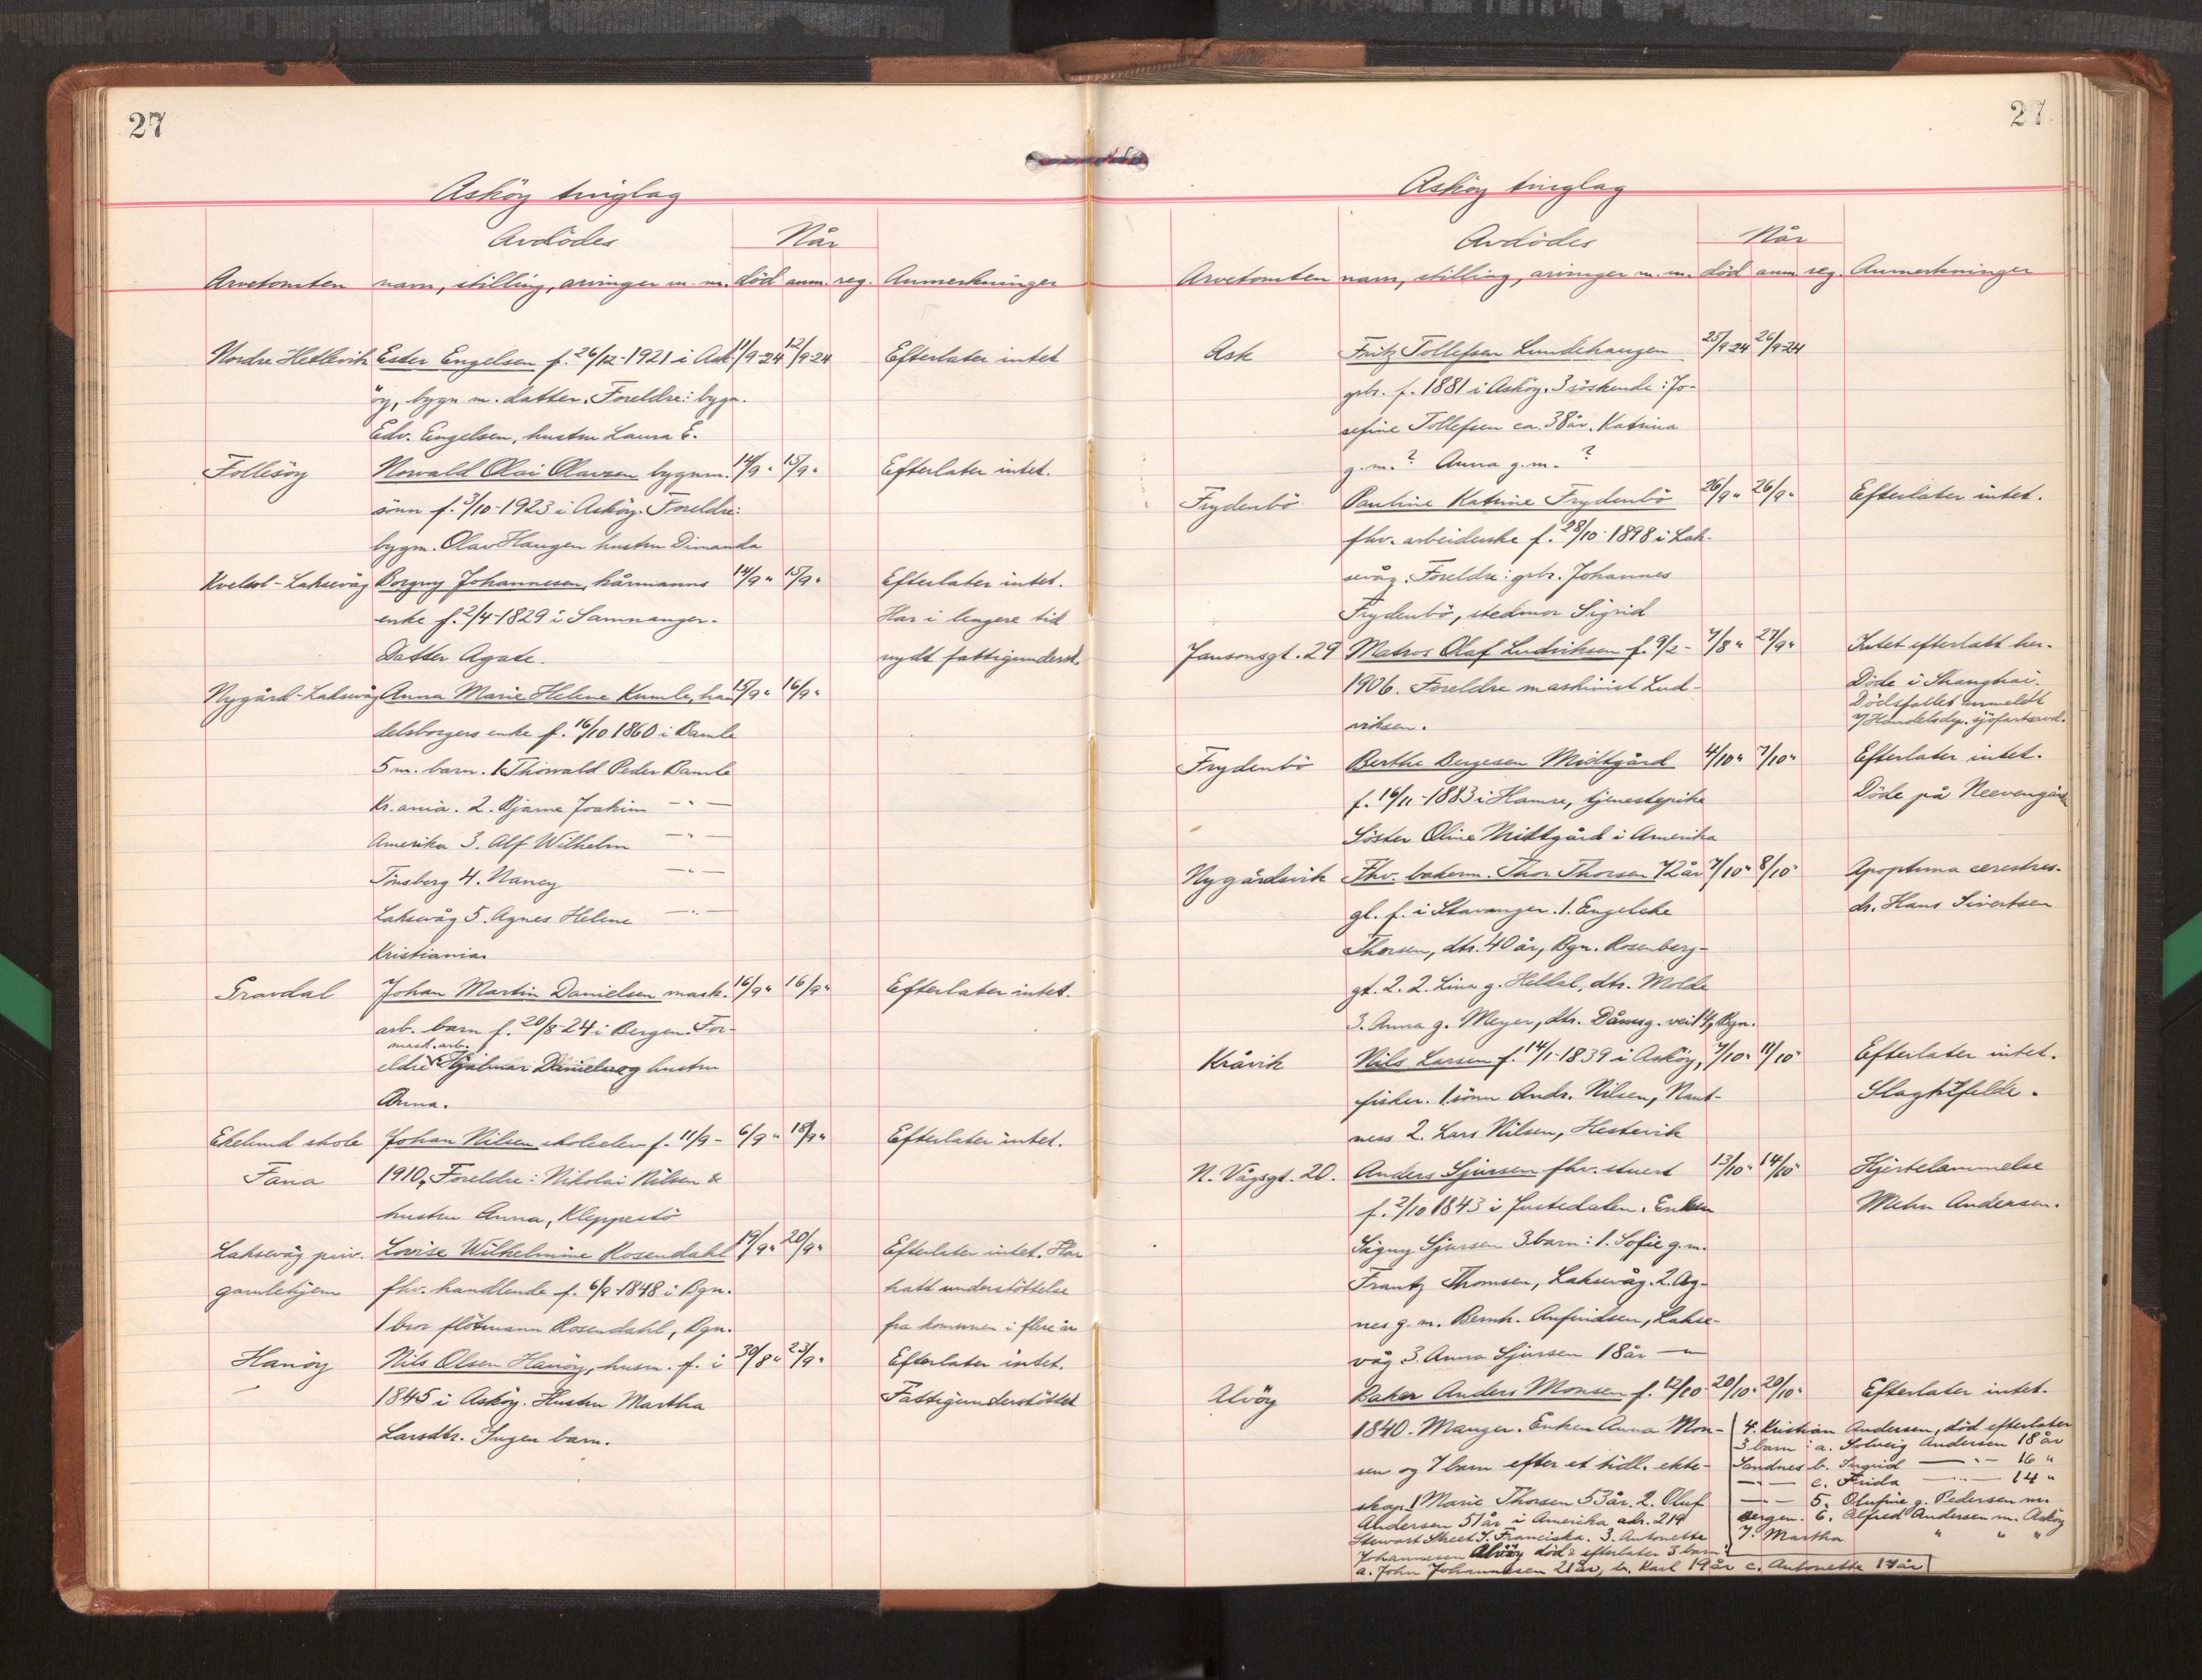 27
Asköy tinglag
Avdödes Når
Arvetomten navn, stilling, arvinger m. m. död anm. reg. Anmerkninger
Nordre Hetlevik Ester Engelsen f. 26/12-1921 i Ask- 11/9-24 12/9-24 Efterlater intet
öy, bygn. m. datter. Foreldre: bygn.
Edv. Engelsen, hustru Laura E.
Follesöy Norvald Olai Olavsen bygnm. 14/9 " 15/9 " Efterlater intet.
sönn f. 3/10-1923 i Asköy. Foreldre:
bygm. Olav Haugen hustru Dimanda
Laksevåg Borgny Johannesen, kårmanns 14/9 " 15/9 " Efterlater intet.
enke f. 2/4-1829 i Samnanger. Har i lengere tid
Datter Agate. nydt fattigunderst.
Nygård-Laksevåg Anna Marie Helene Kumle, han- 15/9 " 16/9 "
delsborgers enke f. 16/10 1860 i Bamle
5 m. barn. 1 Thorvald Peder Bamle
Kr.ania. 2. Bjarne Joakim — " —
Amerika 3. Alf Wilhelm — " —
Tönsberg 4. Nancy — " —
Laksevåg 5. Agnes Helene — " —
Kristiania.
Gravdal Johan Martin Danielsen mask. 16/9 " 16/9 " Efterlater intet.
arb. barn f. 20/8-24 i Bergen. For-
mask. arb.
eldre Hjalmar Danielsen og hustru
Anna.
Ekelund skole Johan Nilsen skoleelev f. 11/9- 6/9 " 18/9 " Efterlater intet.
Fana 1910. Foreldre: Nikolai Nilsen &
hustru Anna, Kleppestö
Laksevåg priv. Lovise Wilhelmine Rosendahl 19/9 " 20/9 " Efterlater intet. Har
gamlehjem fhv. handlende f. 6/8-1848 i Bgn. hatt understöttelse
1 bror flötmann Rosendahl, Bgn. fra komunen i flere år
Hanöy Nils Olsen Hanöy, husm. f. i 30/8 " 23/9 " Efterlater intet.
1845 i Asköy. Hustru Martha Fattigunderstöttet
Larsdtr. Ingen barn.
27.
Asköy tinglag
Avdödes Når
Arvetomten navn, stilling, arvinger m. m. död anm. reg. Anmerkninger
Ask Fritz Tollefsen Lundehaugen 25/9-24 26/9-24
grbr. f. 1881 i Asköy. 3 söskende: Jo-
sefine Tollefsen ca. 38 år. Katrina
g.m. ? Anna g.m. ?
Frydenbö Pauline Katrine Frydenbö 26/9 " 26/9 " Efterlater intet.
fhv. arbeiderske f. 28/10-1898 i Lak-
sevåg. Foreldre: grbr. Johannes
Frydenbö, stedmor Sigrid
Jansonsgt. 29 Matros Olaf Ludviksen f. 9/2- 7/8 " 27/9 " Intet efterlatt her.
1906. Foreldre maskinist Lud- Döde i Shanghai.
viksen. Dödsfallet anmeldt
v/ Handelsdep. sjöfartsavd.
Frydenbö Berthe Bergesen Midtgård 4/10 " 7/10 " Efterlater intet.
f. 16/11-1883 i Hamre, tjenestepike Döde på Neevengården
Söster Oline Midtgård i Amerika
Nygårdsvik Fhv. bakerm. Thor Thorsen 72 år 7/10 " 8/10 " Apoptima cerestres.
gl. f. i Stavanger. 1. Engelcke dr. Hans Sivertsen
Thorsen, dtr. 40 år, Bgn. Rosenberg-
gt. 2. 2. Line g. Helldal, dtr. Molde
3. Anna g. Meyer, dtr. Damsg. vei 14, Bgn.
Kråvik Nils Larsen f. 14/1-1839 i Asköy, 7/10 " 11/10 " Efterlater intet.
fisker. 1. sönn Andr. Nilsen, Naut- Slagtilfelde.
nes 2. Lars Nilsen, Hestevik
N. Vågsgt. 20. Anders Sjursen fhv. stuert 13/10 " 14/10 " Hjertelammelse
f. 2/10 1843 i Justedalen. Enken Mehn Andersen.
Signy Sjursen 3 barn: 1. Sofie g.m.
Frantz Thomsen, Laksevåg. 2. Ag-
nes g. m. Bernh. Anfindsen, Lakse-
våg 3. Anna Sjursen 18 år — " —
Alvöy Baker Anders Monsen f. 12/10- 20/10 " 20/10 " Efterlater intet.
1840. Manger. Enken Anna Mon- 4. Kristian Andersen, död efterlater
sen og 7 barn efter et tidl. ekte- 3 barn: a. Solveig Andersen 18 år
Sandnes b. Ingrid — " — 16 "
— " — c. Frida — " — 14 "
skap 1 Marie Thorsen 53 år. 2. Oluf — " — 5. Olufine g. Pedersen m.
Andersen 51 år i Amerika adr. 219 Bergen. 6. Alfred Andersen m. Asköy
Stewart Street S. Franciska. 3. Antonette 7. Martha " " "
Johannesen Alvöy död & efterlater 3 barn:
a. John Johannesen 21 år, b. Karl 19 år c. Antonette 17 år